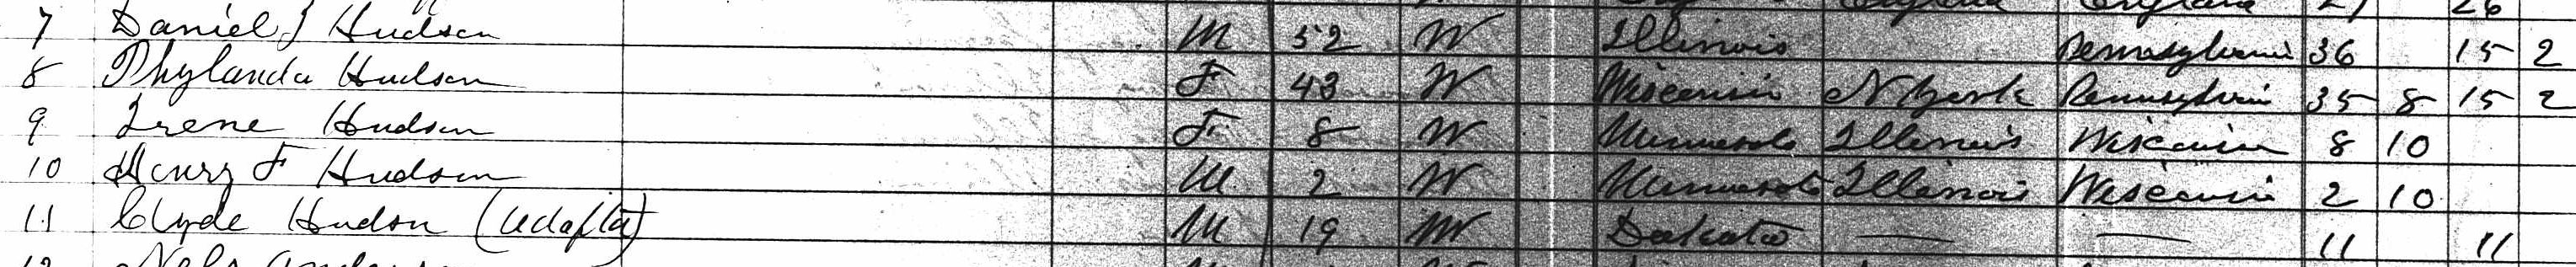 7 Daniel J Hudson M 52 W Illinois Pennsylvania 36 15 2
8 Phylanda Hudson F 43 W Wisconsin N York Pennsylvania 35 8 15 2
9 Irene Hudson F 8 W Minnesota Illinois Wisconsin 8 10
10 Henry F Hudson M 2 W Minnesota Illinois Wisconsin 2 10
11 Clyde Hudson (Adopted) M 19 W Dakota — — 11 11
12 Nels Anderson